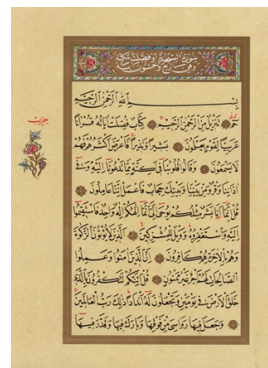 بِسْمِ اللهِ الرَّحْمٰنِ الرَّحِيمِ
حٰمٓ تَنْزِيلٌ مِنَ الرَّحْمٰنِ الرَّحِيمِ كِتَابٌ فُصِّلَتْ اٰيَاتُهُ قُرْاٰنًا
عَرَبِيًّا لِقَوْمٍ يَعْلَمُونَ بَشِيرًا وَنَذِيرًا فَاَعْرَضَ اَكْثَرُهُمْ فَهُمْ
لَا يَسْمَعُونَ وَقَالُوا قُلُوبُنَا فِي اَكِنَّةٍ مِمَّا تَدْعُونَا اِلَيْهِ وَفِي
اٰذَانِنَا وَقْرٌ وَمِنْ بَيْنِنَا وَبَيْنِكَ حِجَابٌ فَاعْمَلْ اِنَّنَا عَامِلُونَ
قُلْ اِنَّمَا اَنَا بَشَرٌ مِثْلُكُمْ يُوحٰى اِلَيَّ اَنَّمَا اِلٰهُكُمْ اِلٰهٌ وَاحِدٌ فَاسْتَقِيمُوا
اِلَيْهِ وَاسْتَغْفِرُوهُ وَوَيْلٌ لِلْمُشْرِكِينَ الَّذِينَ لَا يُؤْتُونَ الزَّكٰوةَ
وَهُمْ بِالْاٰخِرَةِ هُمْ كَافِرُونَ اِنَّ الَّذِينَ اٰمَنُوا وَعَمِلُوا
الصَّالِحَاتِ لَهُمْ اَجْرٌ غَيْرُ مَمْنُونٍ قُلْ اَئِنَّكُمْ لَتَكْفُرُونَ بِالَّذِي
خَلَقَ الْاَرْضَ فِي يَوْمَيْنِ وَتَجْعَلُونَ لَهُ اَنْدَادًا ذٰلِكَ رَبُّ الْعَالَمِينَ
وَجَعَلَ فِيهَا رَوَاسِيَ مِنْ فَوْقِهَا وَبَارَكَ فِيهَا وَقَدَّرَ فِيهَا
حزب